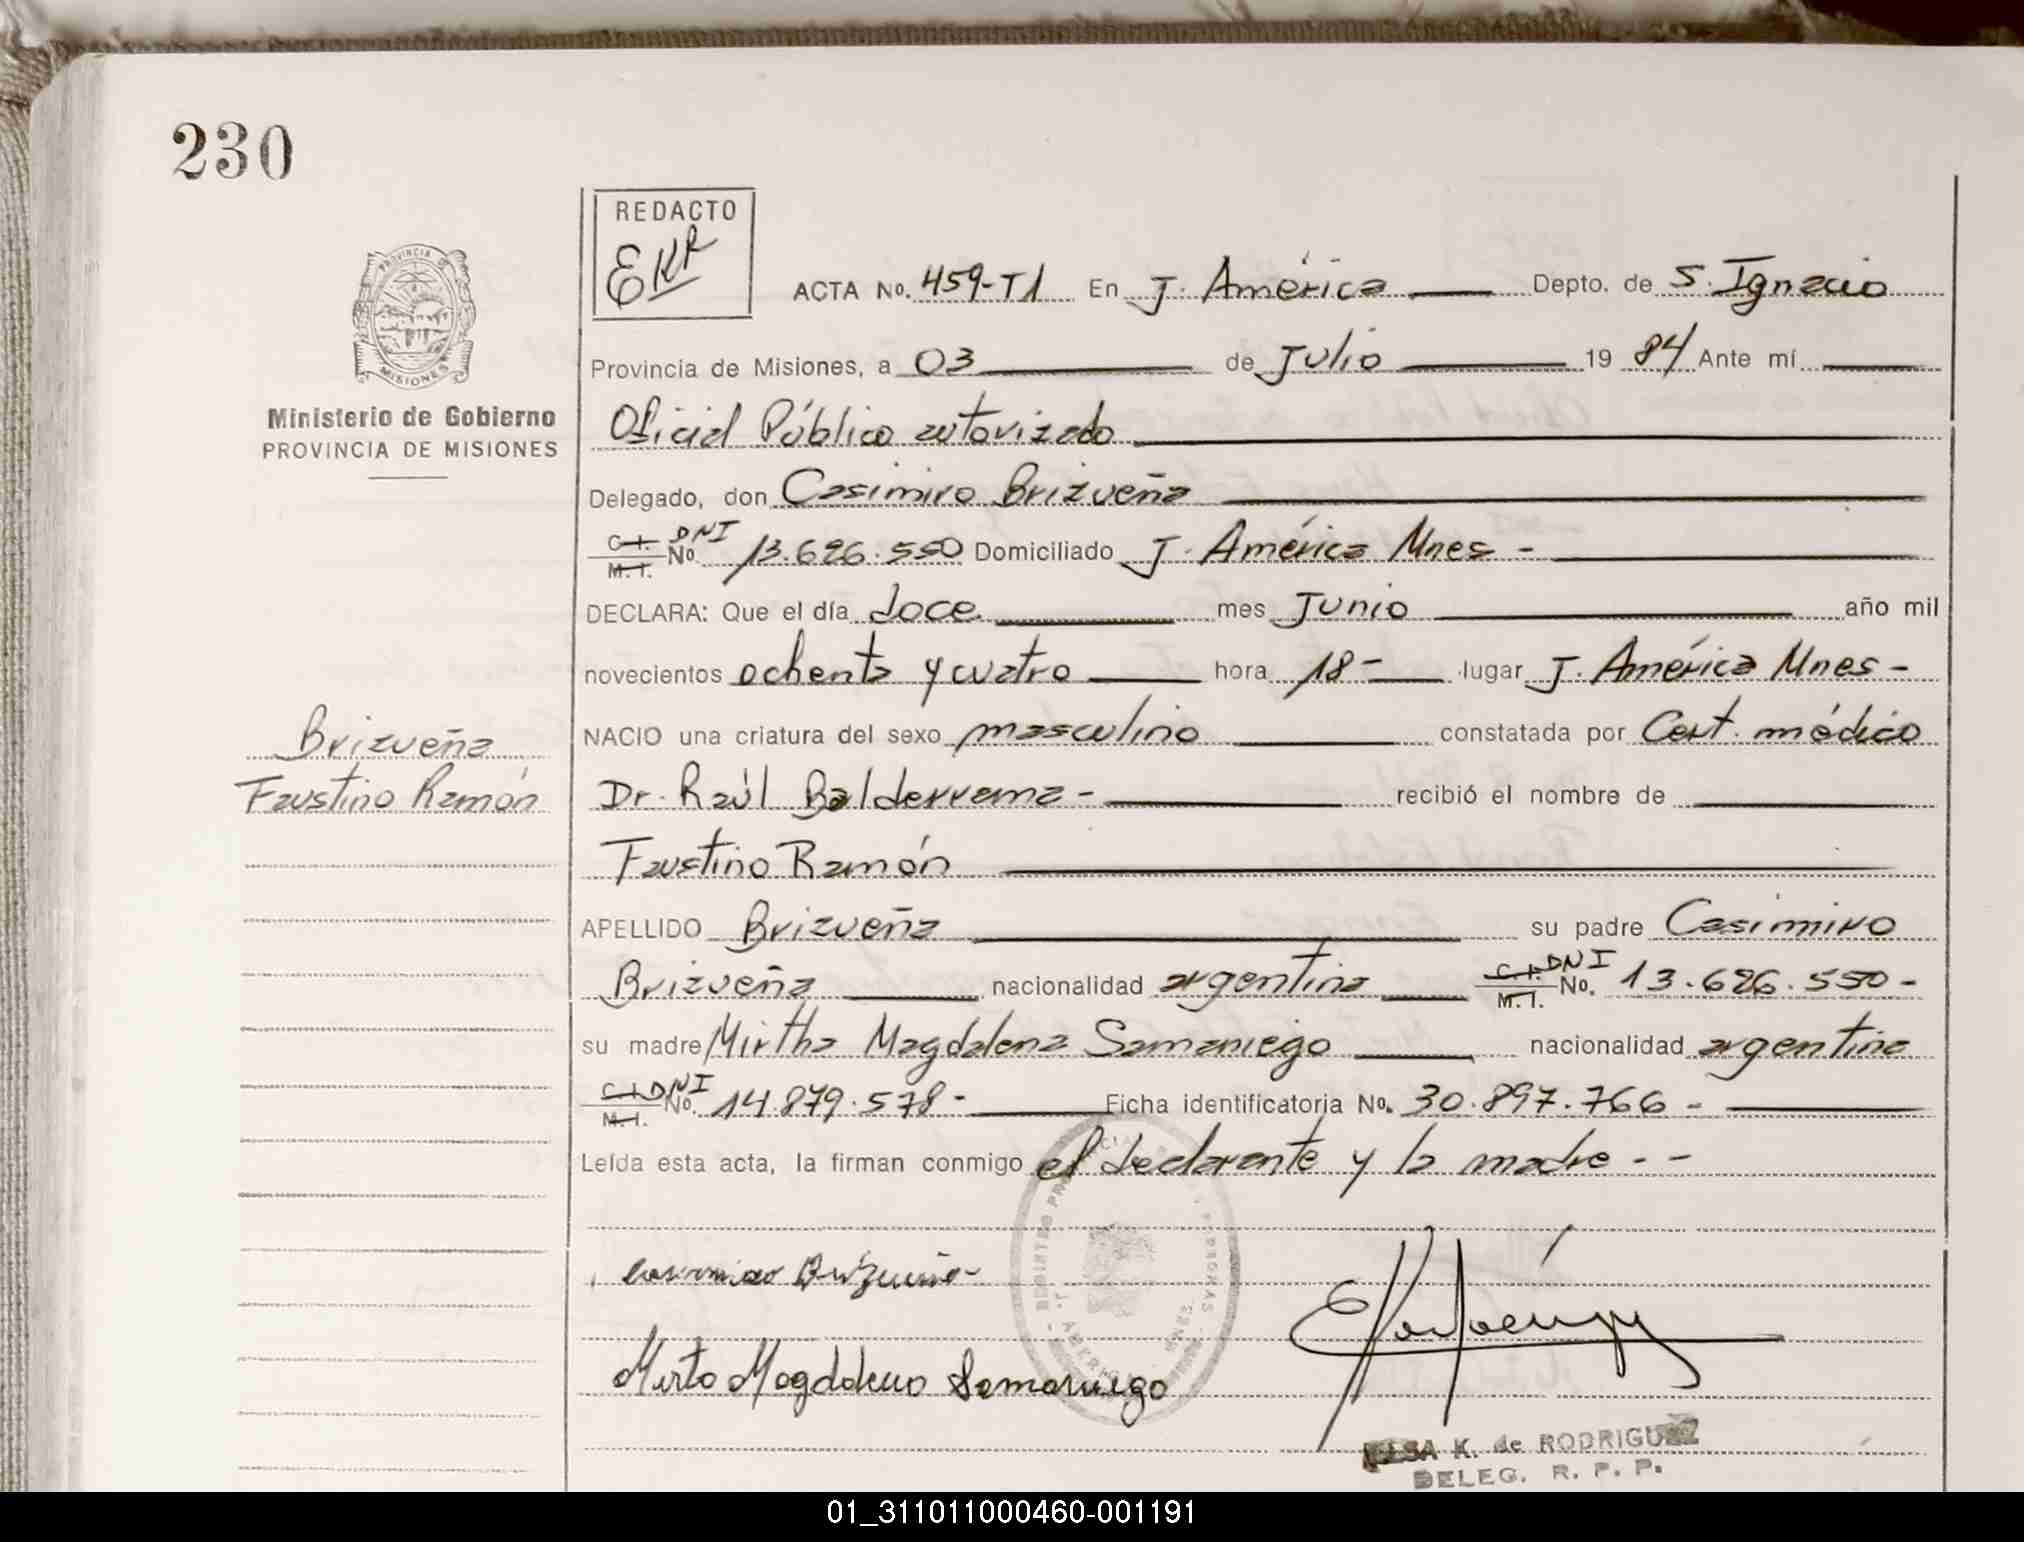 230
REDACTO
EKR
PROVINCIA D
MISIONES
Ministerio de Gobierno
PROVINCIA DE MISIONES
ACTA No. 459-T1 En J. América Depto. de S. Ignacio
Provincia de Misiones, a 03 de Julio 19 84 Ante mí
Oficial Público autorizado
Delegado, don Casimiro Brizueña
C.I. M.I. DNI No. 13.626.550 Domiciliado J. América Mnes -
DECLARA: Que el día doce mes Junio año mil
novecientos ochenta y cuatro hora 18- lugar J. América Mnes -
NACIO una criatura del sexo masculino constatada por Cert. médico
Brizueña
Faustino Ramón
Dr. Raúl Balderrama - recibió el nombre de
Faustino Ramón
APELLIDO Brizueña su padre Casimiro
Brizueña nacionalidad argentina C.I. M.I. DNI No. 13.626.550 -
su madre Mirtha Magdalena Samaniego nacionalidad argentina
C.I. M.I. DNI No. 14.879.578 - Ficha identificatoria No. 30.897.766 -
Leída esta acta, la firman conmigo el declarante y la madre - -
Casimiro Brizueña
Mirta Magdalena Samaniego
ELSA K. de RODRIGUEZ
DELEG. R. P. P.
01_311011000460-001191